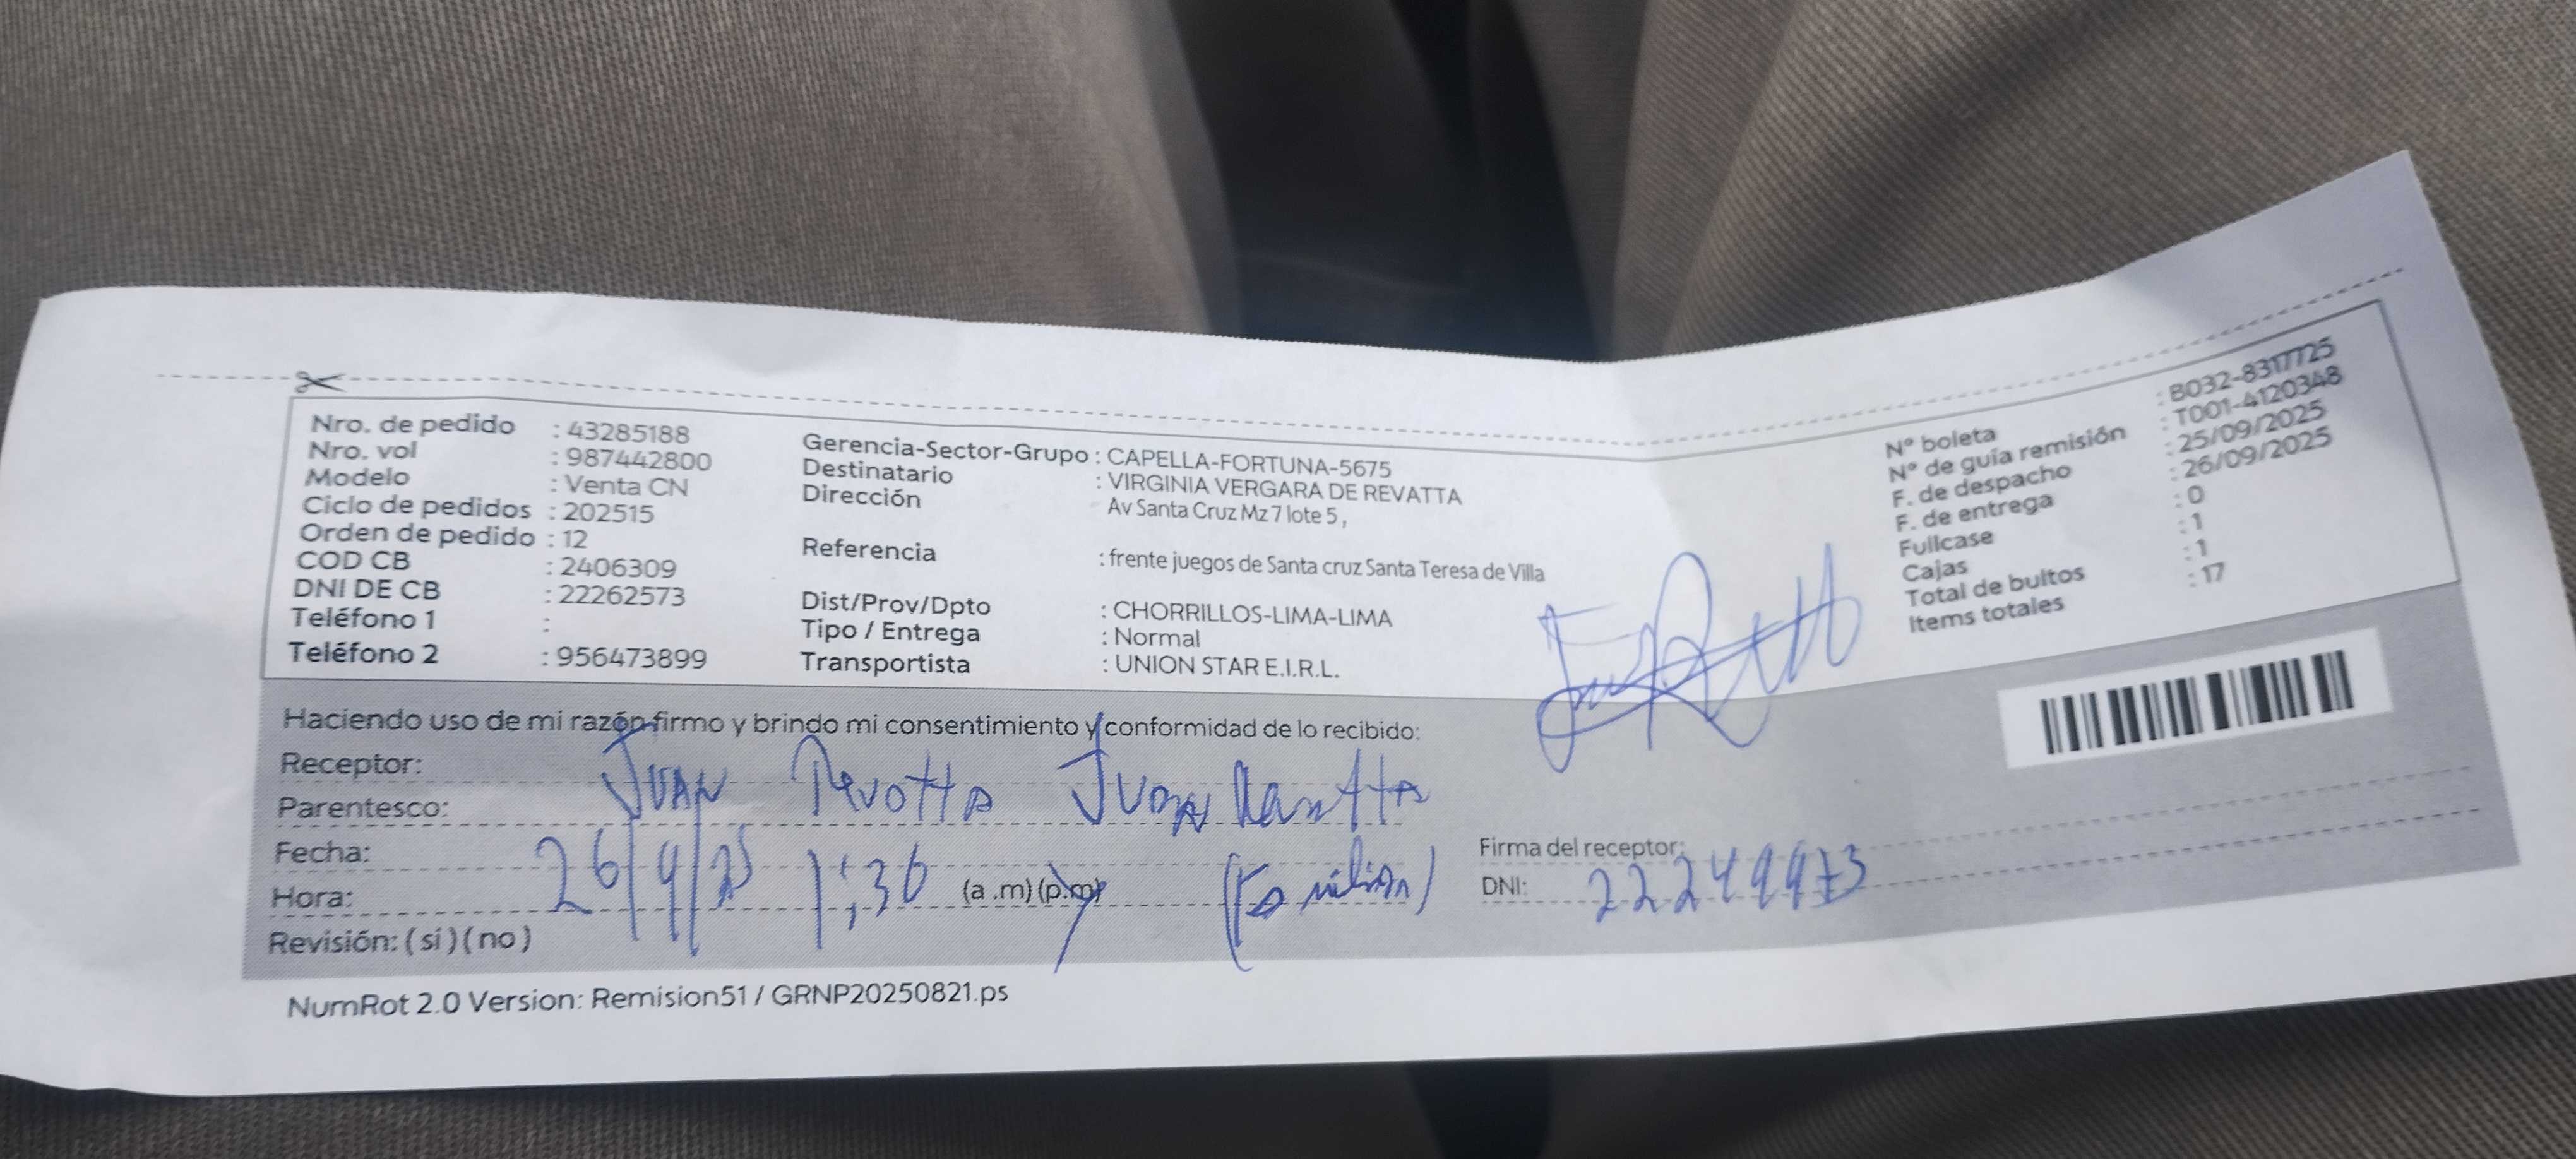 Nro. de pedido : 43285188
Nro. vol : 987442800
Modelo : Venta CN
Ciclo de pedidos : 202515
Orden de pedido : 12
COD CB : 2406309
DNI DE CB : 22262573
Teléfono 1 :
Teléfono 2 : 956473899
Gerencia-Sector-Grupo : CAPELLA-FORTUNA-5675
Destinatario : VIRGINIA VERGARA DE REVATTA
Dirección Av Santa Cruz Mz 7 lote 5 ,
Referencia : frente juegos de Santa cruz Santa Teresa de Villa
Dist/Prov/Dpto : CHORRILLOS-LIMA-LIMA
Tipo / Entrega : Normal
Transportista : UNION STAR E.I.R.L.
N° boleta : B032-8317725
N° de guía remisión : T001-4120348
F. de despacho : 25/09/2025
F. de entrega : 26/09/2025
Fullcase : 0
Cajas : 1
Total de bultos : 1
Items totales : 17
Haciendo uso de mi razón firmo y brindo mi consentimiento y conformidad de lo recibido:
Receptor: Juan Revatta Juan
Parentesco:
Fecha: 26/9/25
Hora: 1:30 (a .m) (p.m)
Revisión: ( si ) ( no )
Firma del receptor:
DNI:
NumRot 2.0 Version: Remision51 / GRNP20250821.ps